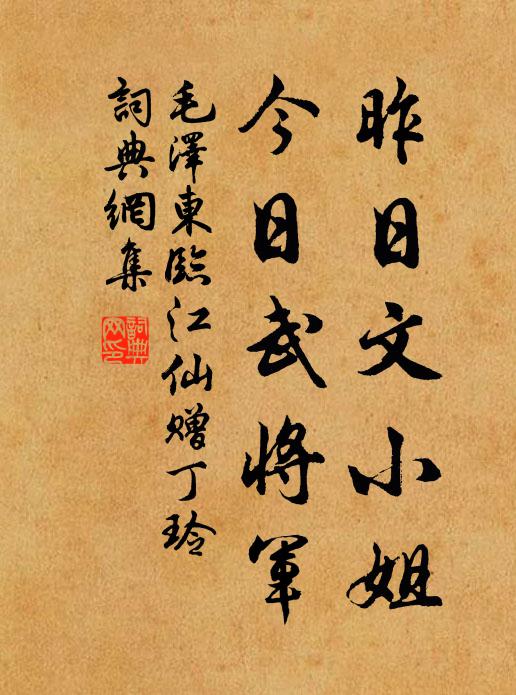 昨日文小姐
今日武將軍
毛澤東臨江仙贈丁玲
詞典網集
詞典網印